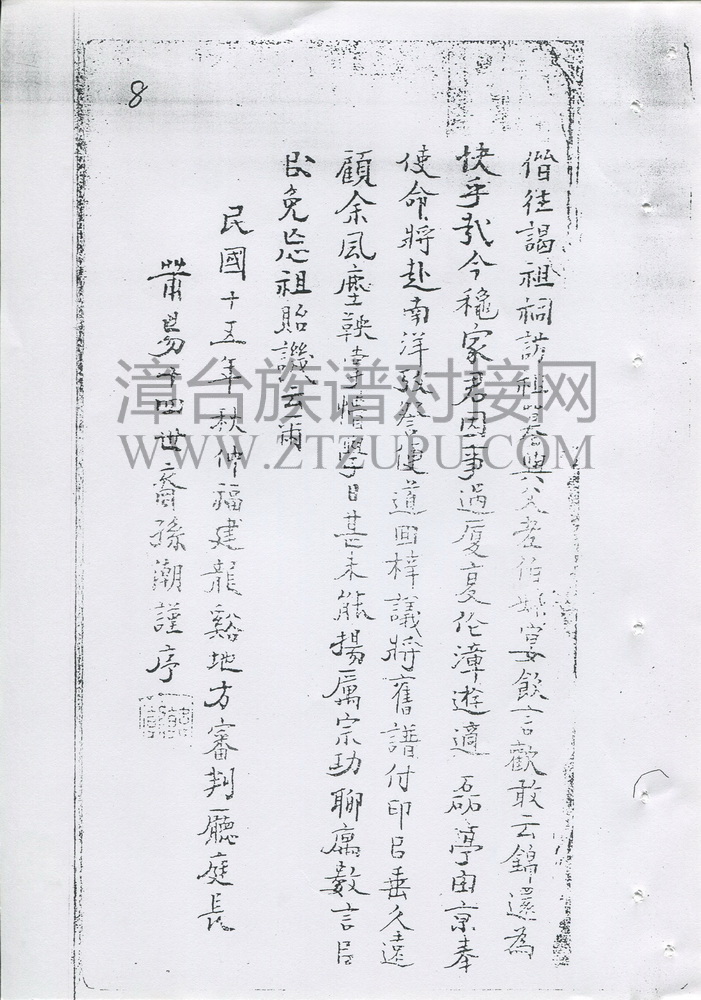 偕往謁祖祠訪祖塋與父老伯叔宴飲言歡敢云錦還為
快乎哉今穐家君因事過廈夏伦漳遊適磊亭由京奉
使命將赴南洋便道回梓議將舊譜付印㠯垂久遠
顧余風塵鞅掌惜學日甚未能揚厲宗功聊腐數言㠯
㠯免忘祖貽譏云爾
民國十五年秋仲福建龍谿地方審判廳庭長
蕭易十四世裔孫潮謹序
8
漳台族谱对接网
WWW.ZTZUPU.COM